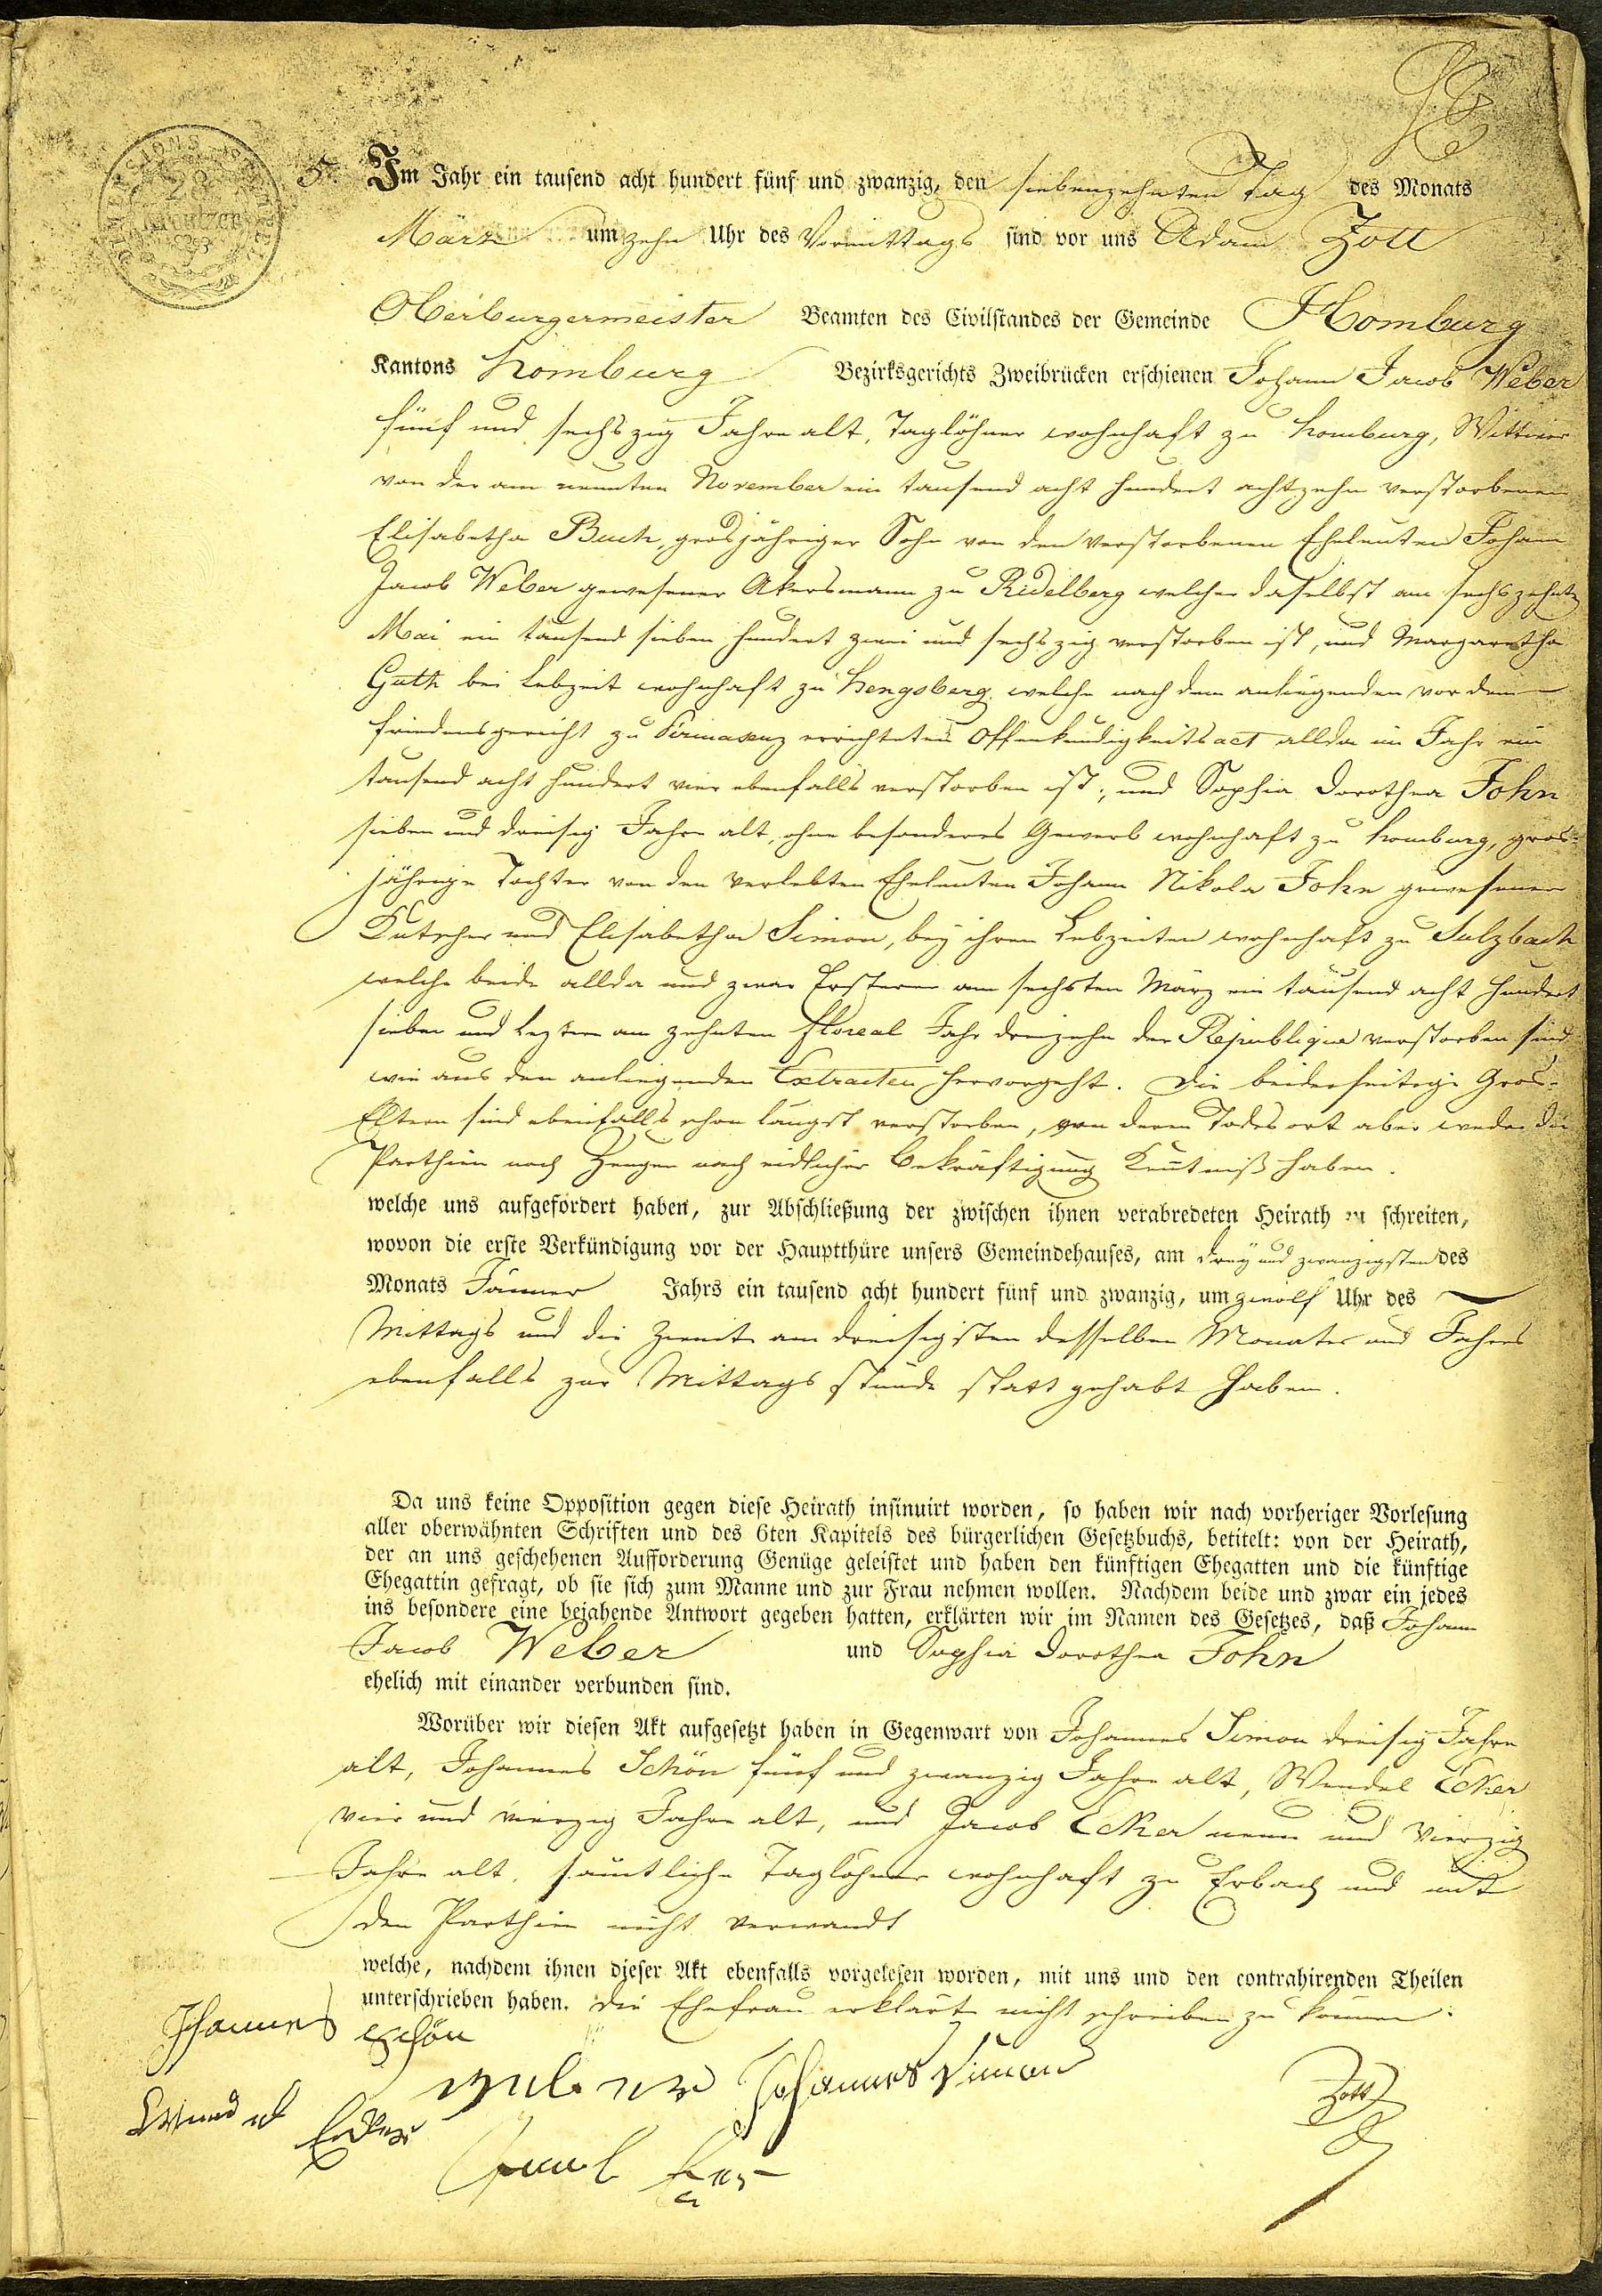 DIMENSIONS STEMPEL
28
Kreutzer
5. Im Jahr ein tausend acht hundert fünf und zwanzig, den siebenzehnten Tag des Monats
März um zehn Uhr des Vormittags sind vor uns Adam Zott
Oberburgermeister Beamten des Civilstandes der Gemeinde Homburg
Kantons Homburg Bezirksgerichts Zweibrücken erschienen Johann Jacob Weber
fünf und sechszig Jahre alt, Taglöhner wohnhaft zu Homburg, Wittwer
von der am neunten November ein tausend acht hundert achtzehn verstorbenen
Elisabetha Buch, grosjähriger Sohn von den verstorbenen Eheleuten Johann
Jacob Weber gewesener Akersmann zu Ridelberg welcher daselbst am sechszehnten
Mai ein tausend sieben hundert zwei und sechszig verstorben ist, und Margaretha
Guth bei Lebzeit wohnhaft zu Hengsberg welche nach dem anliegenden vor dem
Friedensgericht zu Pirmasenz errichteten Offenkundigkeitsact allda im Jahr ein
tausend acht hundert vier ebenfalls verstorben ist; und Sophia Dorothea John
sieben und dreisig Jahre alt, ohne besonderes Gewerb wohnhaft zu Homburg, gros-
jährige Tochter von den verlebten Eheleuten Johann Nikola John gewesener
Kutscher und Elisabetha Simon, bey ihren Lebzeiten wohnhaft zu Sulzbach
welche beide allda und zwar Ersterer am sechsten März ein tausend acht hundert
sieben und leztere am zehnten floreal Jahr dreizehn der Republique verstorben sind
wie aus den anliegenden Extracten hervorgeht. Die beiderseitige Gros-
Eltern sind ebenfalls schon längst verstorben, von deren Todesort aber weder die
Parthien noch Zeugen nach eidlicher Bekräftigung Kentniß haben.
welche uns aufgefordert haben, zur Abschließung der zwischen ihnen verabredeten Heirath zu schreiten,
wovon die erste Verkündigung vor der Hauptthüre unsers Gemeindehauses, am drey und zwanzigsten des
Monats Jänner Jahrs ein tausend acht hundert fünf und zwanzig, um zwölf Uhr des
Mittags und die Zweite am dreisigsten desselben Monats und Jahres
ebenfalls zur Mittags stunde statt gehabt haben.
Da uns keine Opposition gegen diese Heirath insinuirt worden, so haben wir nach vorheriger Vorlesung
aller oberwähnten Schriften und des 6ten Kapitels des bürgerlichen Gesetzbuchs, betitelt: von der Heirath,
der an uns geschehenen Aufforderung Genüge geleistet und haben den künftigen Ehegatten und die künftige
Ehegattin gefragt, ob sie sich zum Manne und zur Frau nehmen wollen. Nachdem beide und zwar ein jedes
ins besondere eine bejahende Antwort gegeben hatten, erklärten wir im Namen des Gesetzes, daß Johann
Jacob Weber und Sophia Dorothea John
ehelich mit einander verbunden sind.
Worüber wir diesen Akt aufgesetzt haben in Gegenwart von Johannes Simon dreisig Jahre
alt, Johannes Schön fünf und zwanzig Jahre alt, Wendel Ecker
vier und vierzig Jahre alt, und Jacob Ecker neun und vierzig
Jahre alt, sämtliche Taglöhner wohnhaft zu Erbach und mit
den Parthien nicht verwandt
welche, nachdem ihnen dieser Akt ebenfalls vorgelesen worden, mit uns und den contrahirenden Theilen
unterschrieben haben. Die Ehefrau erklärte nicht schreiben zu können.
Johannes Schön
Weber Johannes Simon Zott
Wendel Ecker
Jacob